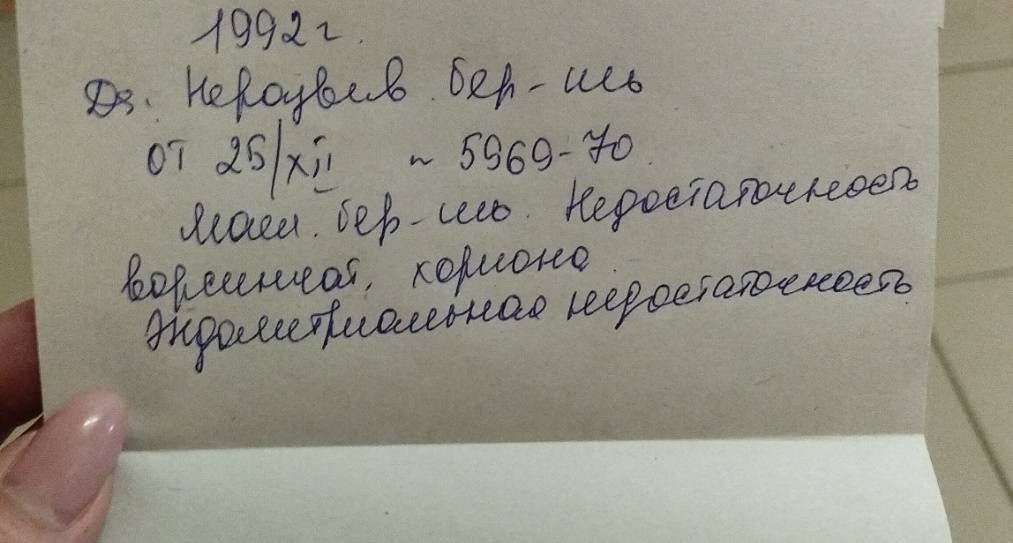 1992 г.
Dз. Неразвив. бер-сть
от 25/XII ~ 5969-70.
бер-сть. Недостаточность
ворсинчат. хориона.
Эндометриальная недостаточность.